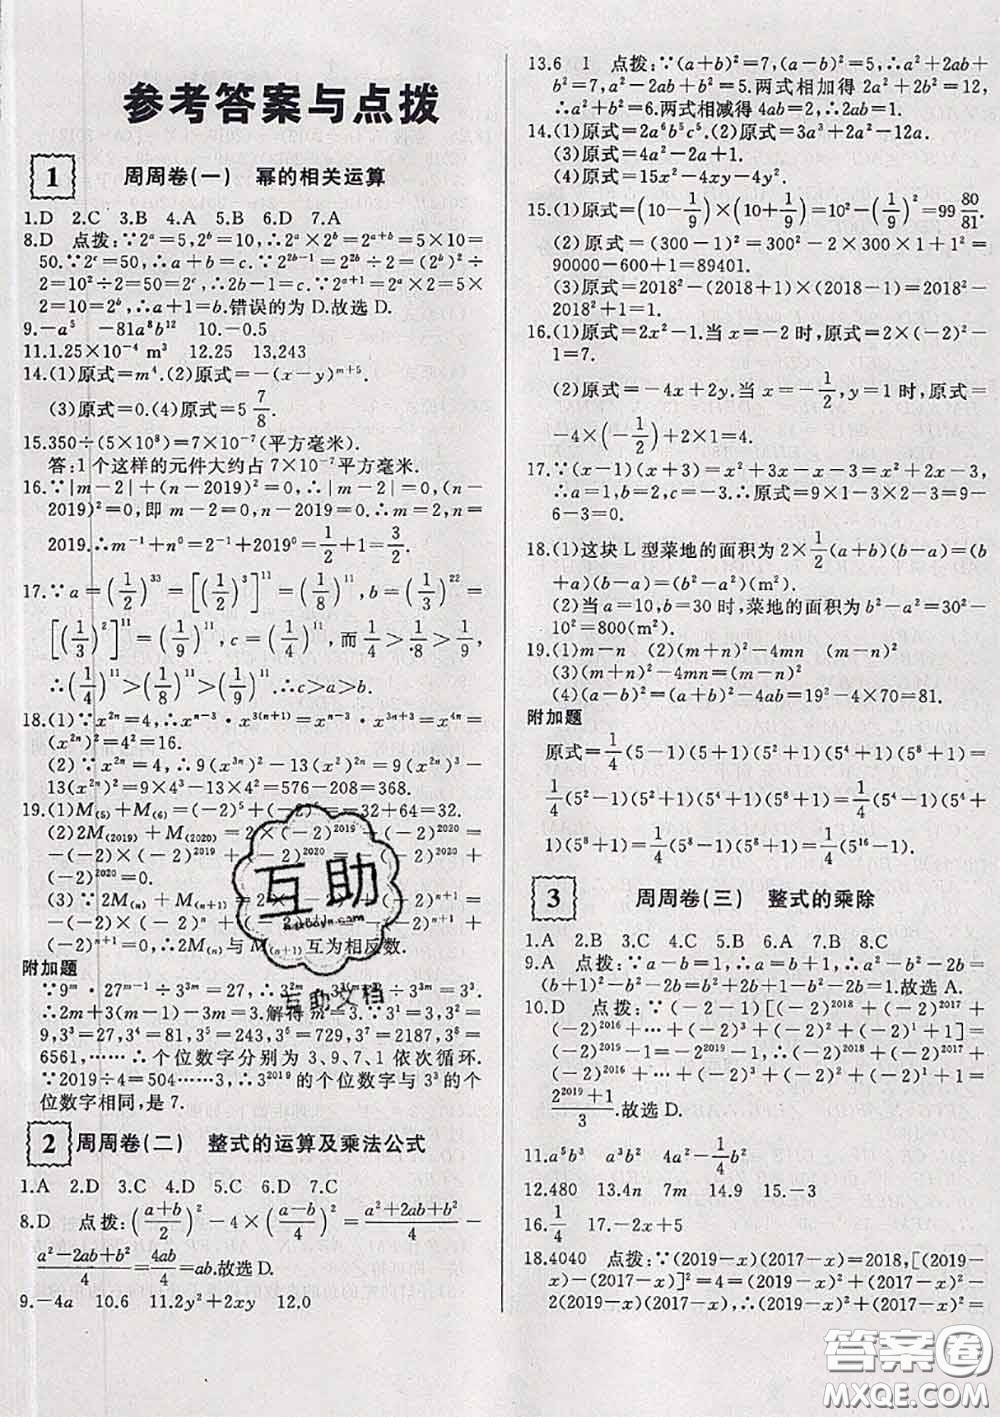 参考答案与点拨
1 周周卷(一) 幂的相关运算
1.D 2.C 3.B 4.A 5.B 6.D 7.A
8.D 点拨:∵2ᵃ=5,2ᵇ=10,∴2ᵃ×2ᵇ=2ᵃ⁺ᵇ=5×10=
50.∵2ᶜ=50,∴a+b=c.∵2²ᵇ⁻¹=2²ᵇ÷2=(2ᵇ)²÷
2=10²÷2=50=2ᶜ,∴2b-1=c.∵2ᵃ⁺¹=2ᵃ×2=5×
2=10=2ᵇ,∴a+1=b.错误的为 D.故选 D.
9.-a⁵ -81a⁸b¹² 10.-0.5
11.1.25×10⁻⁴ m³ 12.25 13.243
14.(1)原式=m⁴.(2)原式=-(x-y)ᵐ⁺⁵.
(3)原式=0.(4)原式=5 7/8.
15.350÷(5×10⁸)=7×10⁻⁷(平方毫米).
答:1个这样的元件大约占7×10⁻⁷平方毫米.
16.∵|m-2|+(n-2019)²=0,∴|m-2|=0,(n-
2019)²=0,即m-2=0,n-2019=0,∴m=2,n=
2019.∴m⁻¹+n⁰=2⁻¹+2019⁰=1/2+1=3/2.
17.∵a=(1/2)³³=[(1/2)³]¹¹=(1/8)¹¹,b=(1/3)²²=
[(1/3)²]¹¹=(1/9)¹¹,c=(1/4)¹¹,而1/4>1/8>1/9,
∴(1/4)¹¹>(1/8)¹¹>(1/9)¹¹.∴c>a>b.
18.(1)∵x²ⁿ=4,∴xⁿ⁻³·x³⁽ⁿ⁺¹⁾=xⁿ⁻³·x³ⁿ⁺³=x⁴ⁿ=
(x²ⁿ)²=4²=16.
(2)∵x²ⁿ=4,∴9(x³ⁿ)²-13(x²)²ⁿ=9(x²ⁿ)³-
13(x²ⁿ)²=9×4³-13×4²=576-208=368.
19.(1)M₍₅₎+M₍₆₎=(-2)⁵+(-2)⁶=-32+64=32.
(2)2M₍₂₀₁₉₎+M₍₂₀₂₀₎=2×(-2)²⁰¹⁹+(-2)²⁰²⁰=
-(-2)×(-2)²⁰¹⁹+(-2)²⁰²⁰=-(-2)²⁰²⁰+
(-2)²⁰²⁰=0.
(3)∵2M₍ₙ₎=-(-2)×(-2)ⁿ=-(-2)ⁿ⁺¹,
M₍ₙ₊₁₎=(-2)ⁿ⁺¹,∴2M₍ₙ₎+M₍ₙ₊₁₎=-(-2)ⁿ⁺¹+
(-2)ⁿ⁺¹=0.∴2M₍ₙ₎与M₍ₙ₊₁₎互为相反数.
附加题
∵9ᵐ·27ᵐ⁻¹÷3³ᵐ=27,
∴2m+3(m-1)-3m=3.解得m=3.∵3¹=3,3²=
9,3³=27,3⁴=81,3⁵=243,3⁶=729,3⁷=2187,3⁸=
6561,……∴个位数字分别为3、9、7、1依次循环.
∵2019÷4=504……3,∴3²⁰¹⁹的个位数字与3³的个
位数字相同,是7.
2 周周卷(二) 整式的运算及乘法公式
1.A 2.D 3.C 4.D 5.C 6.D 7.C
8.D 点拨:((a+b)/2)²-4×((a-b)/4)²=(a²+2ab+b²)/4-
(a²-2ab+b²)/4=4ab/4=ab.故选D.
9.-4a 10.6 11.2y²+2xy 12.0
13.6 1 点拨:∵(a+b)²=7,(a-b)²=5,∴a²+2ab+
b²=7,a²-2ab+b²=5.两式相加得2a²+2b²=12,
∴a²+b²=6.两式相减得4ab=2,∴4a²b²=1.
14.(1)原式=2a⁶b⁵c⁵.(2)原式=3a³+2a²-12a.
(3)原式=4a²-1.
(4)原式=15x²-4xy-4y².
15.(1)原式=(10-1/9)×(10+1/9)=10²-(1/9)²=99 80/81.
(2)原式=(300-1)²=300²-2×300×1+1²=
90000-600+1=89401.
(3)原式=2018²-(2018+1)×(2018-1)=2018²-
2018²+1=1.
16.(1)原式=2x²-1.当x=-2时,原式=2×(-2)²-
1=7.
(2)原式=-4x+2y.当x=-1/2,y=1时,原式=
-4×(-1/2)+2×1=4.
17.∵(x-1)(x+3)=x²+3x-x-3=x²+2x-3,
∴a=1,b=2,c=-3.∴原式=9×1-3×2-3=9-
6-3=0.
18.(1)这块L型菜地的面积为2×1/2(a+b)(b-a)=(b
+a)(b-a)=(b²-a²)(m²).
(2)当a=10,b=30时,菜地的面积为b²-a²=30²-
10²=800(m²).
19.(1)m-n (2)(m+n)²-4mn (m-n)²
(3)(m+n)²-4mn=(m-n)²
(4)(a-b)²=(a+b)²-4ab=19²-4×70=81.
附加题
原式=1/4(5-1)(5+1)(5²+1)(5⁴+1)(5⁸+1)=
1/4(5²-1)(5²+1)(5⁴+1)(5⁸+1)=1/4(5⁴-1)(5⁴+
1)(5⁸+1)=1/4(5⁸-1)(5⁸+1)=1/4(5¹⁶-1).
3 周周卷(三) 整式的乘除
1.A 2.B 3.C 4.C 5.B 6.A 7.B 8.C
9.A 点拨:∵a-b=1,∴a=b+1,∴a²-b²-2b=
(b+1)²-b²-2b=b²+2b+1-b²-2b=1.故选A.
10.D 点拨:∵(-2-1)[(-2)²⁰¹⁸+(-2)²⁰¹⁷+
(-2)²⁰¹⁶+…+(-2)³+(-2)²+(-2)¹+1]=
(-2)²⁰¹⁹-1=-2²⁰¹⁹-1,∴(-2)²⁰¹⁸+(-2)²⁰¹⁷+
(-2)²⁰¹⁶+…+(-2)³+(-2)²+(-2)¹+1=
(2²⁰¹⁹+1)/3.故选D.
11.a⁵b³ a³b² 4a²-1/4b²
12.480 13.4n 7m 14.9 15.-3
16.1/4 17.-2x+5
18.4040 点拨:∵(2019-x)(2017-x)=2018,[(2019
-x)-(2017-x)]²=4=(2019-x)²+(2017-x)²-
2(2019-x)(2017-x),∴(2019-x)²+(2017-x)²=
互助
互助文档
答案圈
MXQE.COM